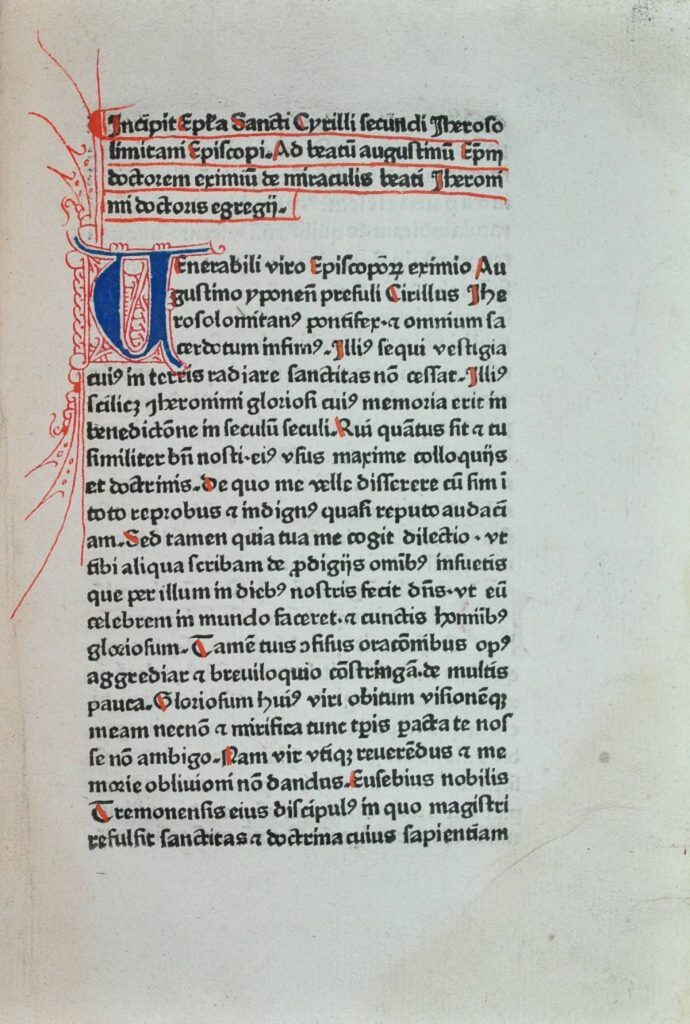 Incipit Epła Sancti Cyrilli secundi Jheroso
limitani Episcopi. Ad beatū augustinū Epm̄
doctorem eximiū de miraculis beati Jheroni
mi doctoris egregij.
Uenerabili viro Episcoporꝝ eximio Au
gustino yponen̄ presuli Cirillus Jhe
rosolomitanꝰ pontifex. ⁊ omnium sa
cerdotum infimꝰ. Illiꝰ sequi vestigia
cuiꝰ in terris radiare sanctitas nō cessat. Illiꝰ
scilicꝫ Jheronimi gloriosi cuiꝰ memoria erit in
benedictōne in seculū seculi. Rui quātus sit ⁊ tu
similiter bn̄ nosti. eiꝰ vsus maxime colloquijs
et doctrinis. De quo me velle disserere cū sim ī
toto reprobus ⁊ indignꝰ quasi reputo audaci
am. Sed tamen quia tua me cogit dilectio. vt
tibi aliqua scribam de ꝓdigijs omībꝰ insuetis
que per illum in diebꝰ nostris fecit dn̄s. vt eū
celebrem in mundo faceret. ⁊ cunctis homīibꝰ
gloriosum. Tamē tuis ↄfisus oracōnibus opꝰ
aggrediar ⁊ breviloquio cōstringā. de multis
pauca. Gloriosum huiꝰ viri obitum visionēqꝫ
meam necnō ⁊ mirifica tunc tp̄is pacta te nos
se nō ambigo. Nam vir vtiqꝫ reverēdus ⁊ me
morie oblivioni nō dandus. Eusebius nobilis
Tremonensis eius discipulꝰ in quo magistri
refulsit sanctitas ⁊ doctrina cuius sapientiam